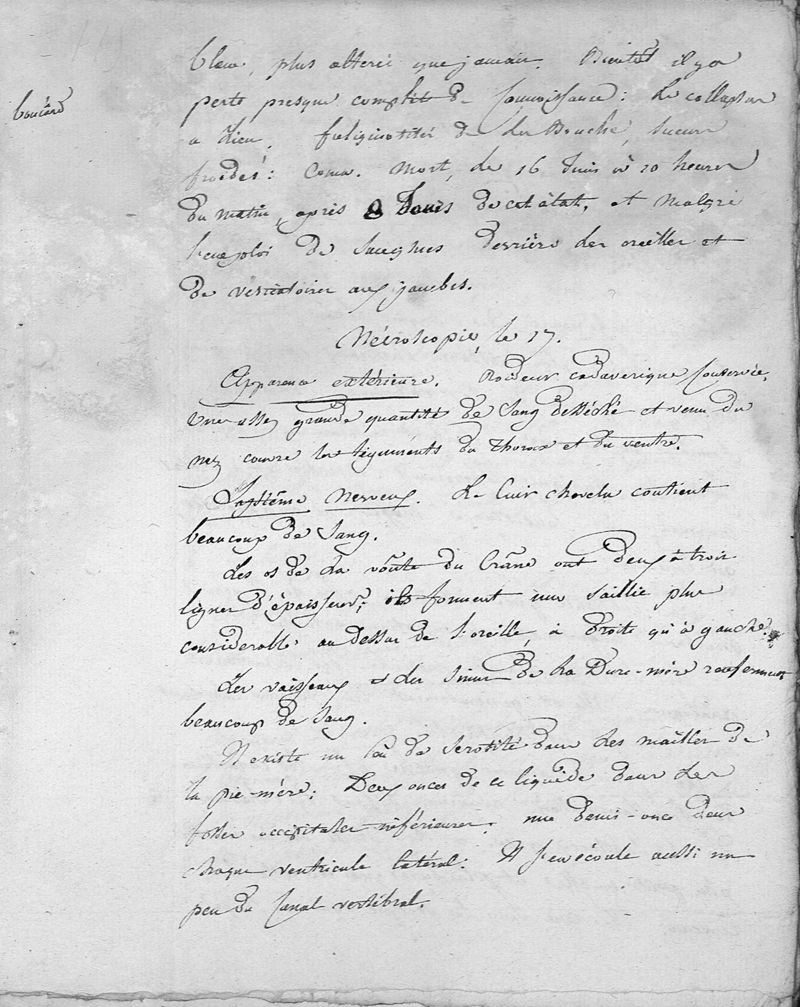 bleue, plus altérée que jamais. Bientôt il y a
perte presque complète de Connoissance: Le collapsus
a Lieu, fuliginosités de La Bouche, Sueurs
froides: Coma. Mort, Le 16 Juin à 10 heures
du matin, après 8 Jours de cet état, et malgré
l'emploi de Sangsues derrière Les oreilles et
de vésicatoires aux jambes.
Nécroscopie, le 17.
Apparence extérieure. Roideur cadavérique Conservée,
Une assez grande quantité de Sang desséché et venu du
nez couvre les téguments du Thorax et du ventre.
Système Nerveux. Le Cuir chevelu contient
beaucoup de Sang.
Les os de La voûte du Crâne ont deux à trois
lignes d'épaisseur; ils forment une Saillie plus
considérable au dessus de l'oreille, à droite qu'à gauche.
Les vaisseaux et Les Sinus de La Dure-mère renferment
beaucoup de Sang.
Il existe un peu de Serosité dans Les mailles de
la pie-mère; Deux onces de ce liquide dans Les
fosses occipitales inférieures; une demi-once dans
chaque ventricule latéral. Il s'en écoule aussi un
peu du Canal vertébral.